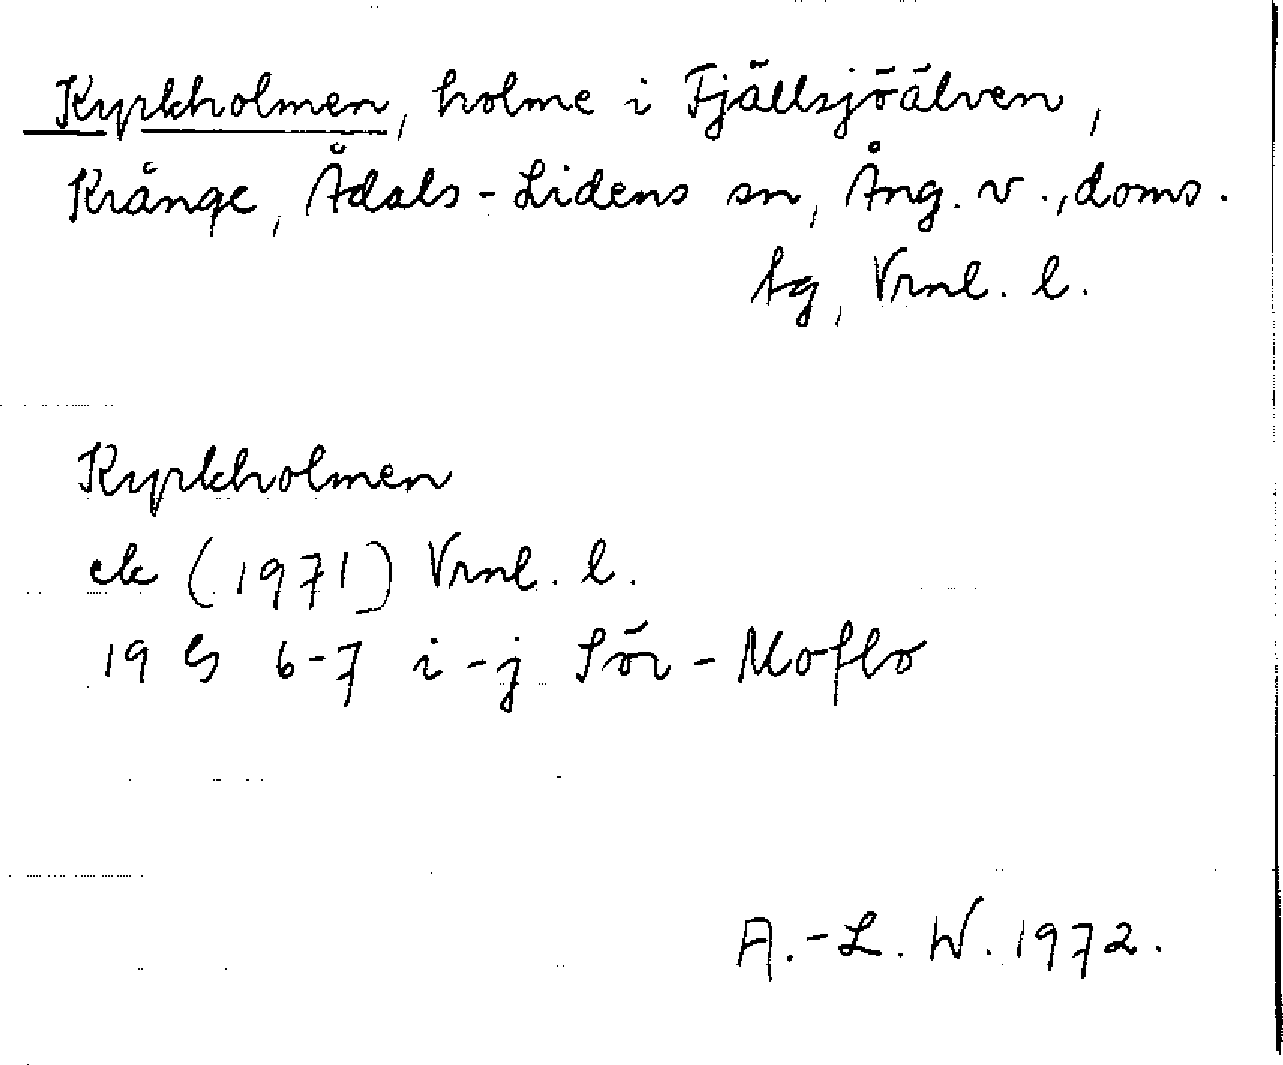 Kyrkholmen, holme i Fjällsjöälven,
Krånge, Ådals-Lidens sn, Ång. v., doms.
tg, Vrnl. l.
Kyrkholmen
ek (1971) Vrnl. l.
19 G 6-7 i-j Sör-Moflo
A.-L. W. 1972.